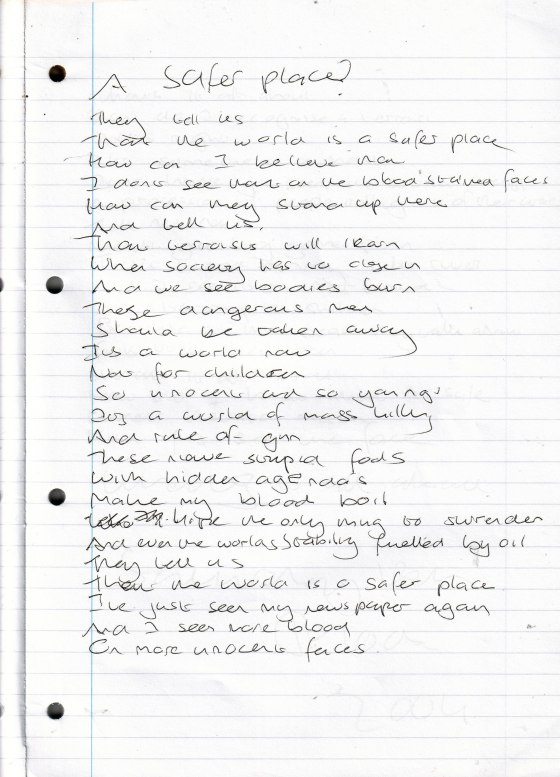 A Safer place?
They tell us
That the world is a safer place
How can I believe them
I dont see that on the blood strained faces
How can they stand up there
And tell us.
That terrorists will learn
When society has to close in
And we see bodies burn
These dangerous men
Should be taken away
Its a world now
Not for children
So innocent and so young
Its a world of mass killing
And rule of gun
These naive stupid fools
with hidden agenda's
Make my blood boil
the only thing to surrender
And even the worlds stability fuelled by oil
They tell us
That the world is a safer place
I've just seen my newspaper again
And I seen more blood
On more innocent faces.